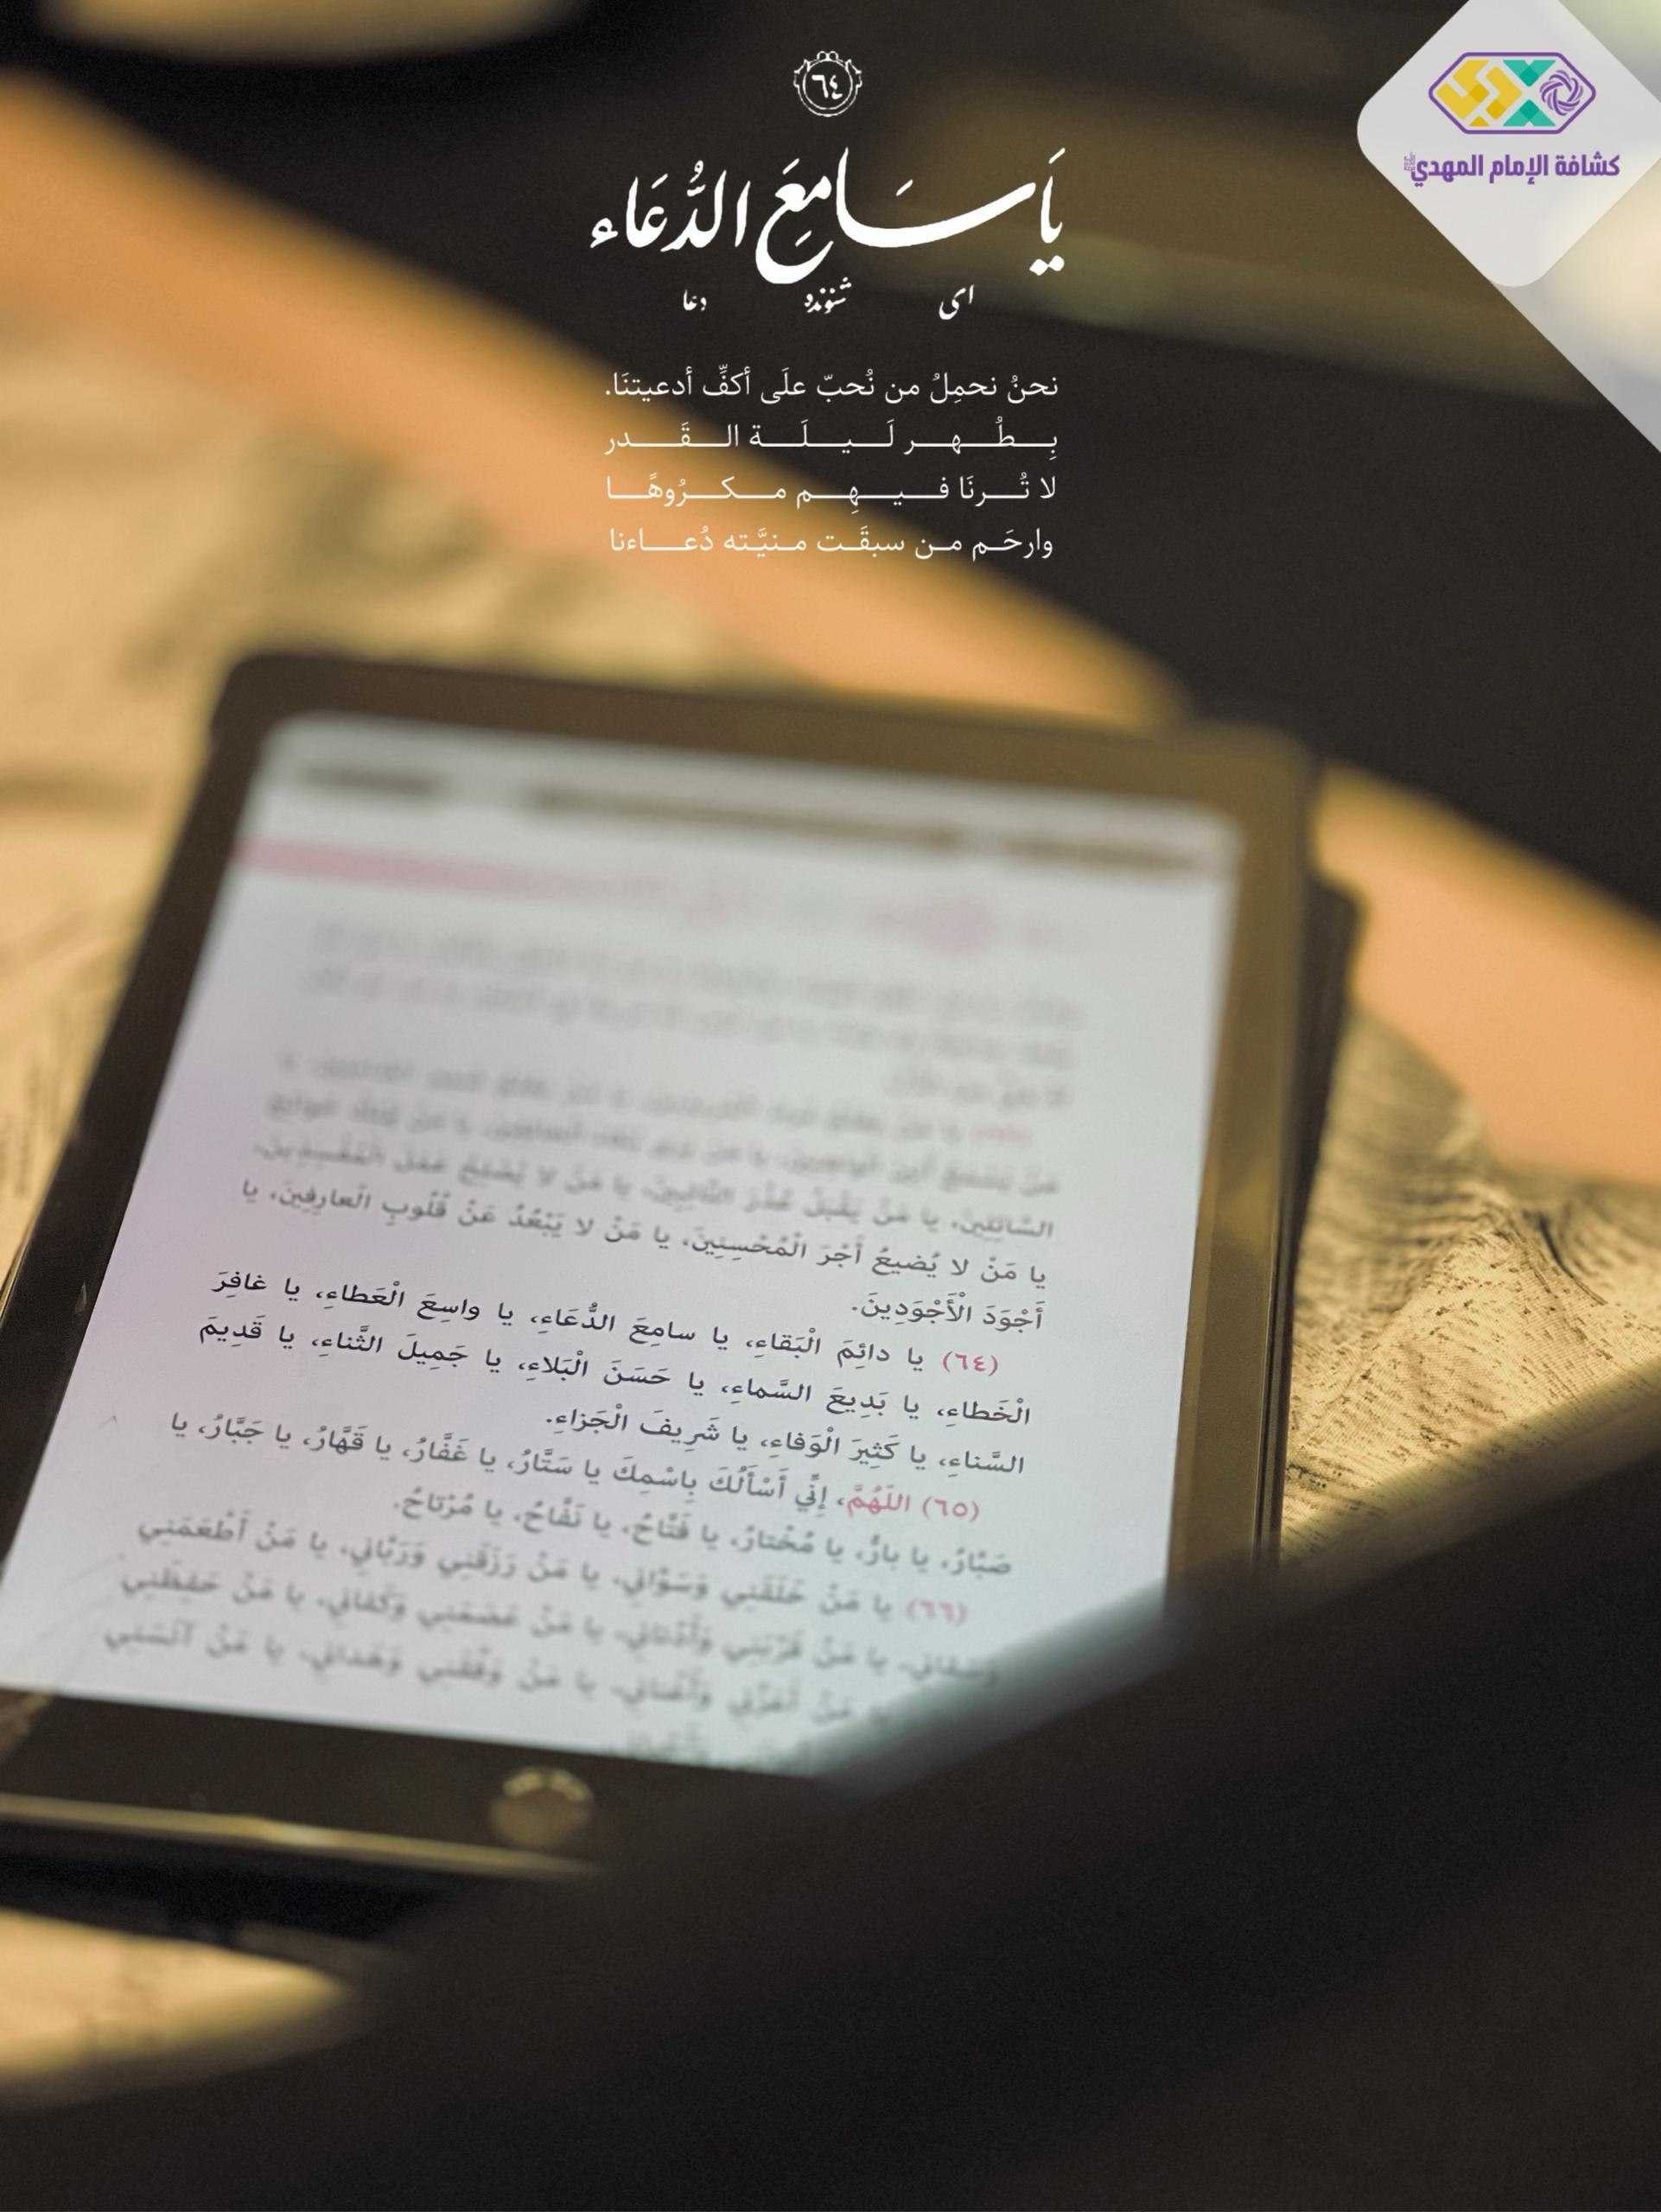 ٦٤
كشافة الإمام المهدي
يَا سَامِعَ الدُّعَاء
ای شنونده دعا
نحنُ نحمِلُ من نُحبّ علَى أكفِّ أدعيتنَا.
بِطُهر لَيلَة القَدر
لا تُرنَا فيهِم مكرُوهًا
وارحَم من سبقَت منيَّته دُعاءنا
السَّائِلِينَ، يا مَنْ يَقْبَلُ عُذْرَ التَّائِبِينَ، يا مَنْ لا يُصْلِحُ عَمَلَ الْمُفْسِدِينَ،
يا مَنْ لا يُضيعُ أَجْرَ الْمُحْسِنِينَ، يا مَنْ لا يَبْعُدُ عَنْ قُلُوبِ الْعارِفِينَ، يا
أَجْوَدَ الْأَجْوَدِينَ.
(٦٤) يا دائِمَ الْبَقاءِ، يا سامِعَ الدُّعَاءِ، يا واسِعَ الْعَطاءِ، يا غافِرَ
الْخَطاءِ، يا بَدِيعَ السَّماءِ، يا حَسَنَ الْبَلاءِ، يا جَمِيلَ الثَّناءِ، يا قَدِيمَ
السَّناءِ، يا كَثِيرَ الْوَفاءِ، يا شَرِيفَ الْجَزاءِ.
(٦٥) اللّهُمَّ، إِنِّي أَسْأَلُكَ بِاسْمِكَ يا سَتَّارُ، يا غَفَّارُ، يا قَهَّارُ، يا جَبَّارُ، يا
صَبّارُ، يا بارُّ، يا مُخْتارُ، يا فَتَّاحُ، يا نَفَّاحُ، يا مُرْتاحُ.
(٦٦) يا مَنْ خَلَقَنِي وَسَوَّانِي، يا مَنْ رَزَقَنِي وَرَبَّانِي، يا مَنْ أَطْعَمَنِي
وَسَقانِي، يا مَنْ قَرَّبَنِي وَأَدْنانِي، يا مَنْ عَصَمَنِي وَكَفانِي، يا مَنْ حَفِظَنِي
مَنْ أَعَزَّنِي وَأَغْنانِي، يا مَنْ وَفَّقَنِي وَهَدانِي، يا مَنْ آنَسَنِي